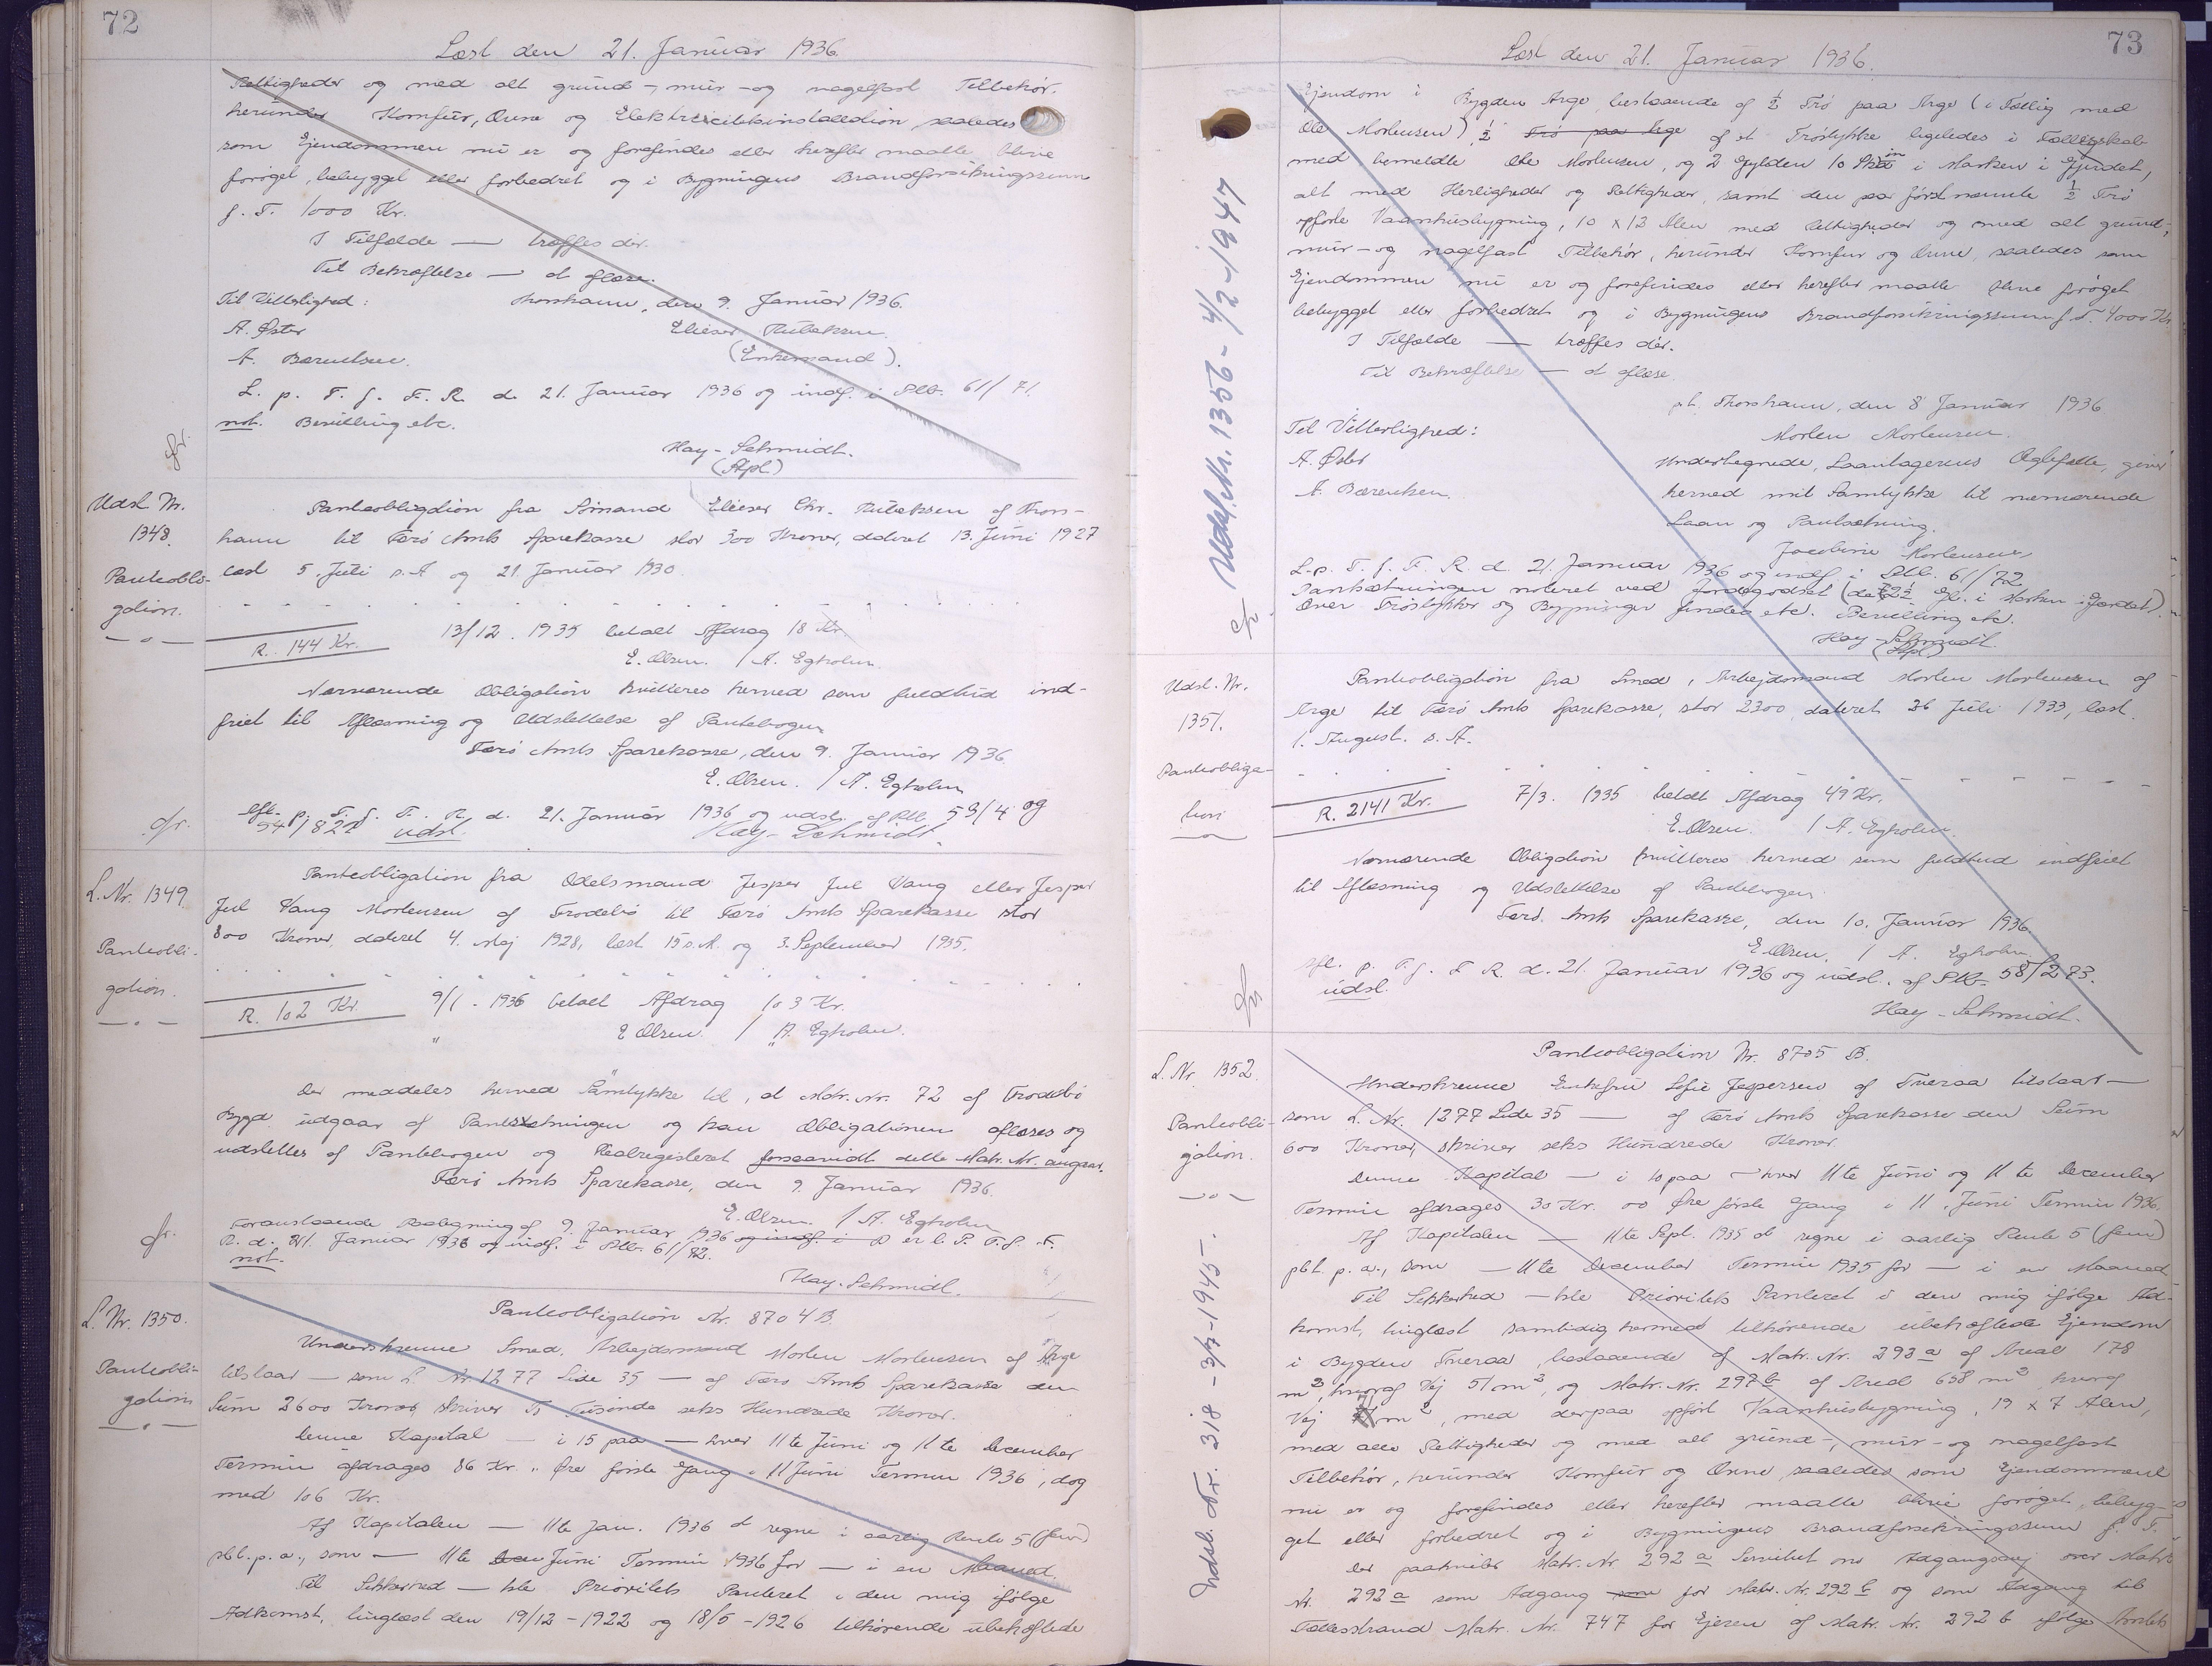 72
Læst den 21. Januar 1936.
Rettigheder og med alt grund-, mur- og nagelfast Tilbehør.
herunder Komfur, Ovne og Elektricitetsinstallation, saaledes
som Ejendommen nu er og forefindes eller herefter maatte blive
forøget, bebygget eller forbedret og i Bygningens Brandforsikringssum
f. T. 1000 Kr.
I Tilfælde — træffes dér.
Til Bekræftelse — at aflæse.
Til Vitterlighed: Thorshavn, den 9. Januar 1936.
A. Øster Elieser Rubeksen
A. Bærentsen. (Enkemand).
L. p. T. f. F. R. d. 21. Januar 1936 og indf. i Plb. 61/71.
not. Bevilling etc.
Hay-Schmidt.
(Apl)
Udsl. Nr.
1348.
Panteobli-
gation.
Panteobligation fra Sømand Elieser Chr. Rubeksen af Thors-
havn til Færø Amts Sparekasse stor 300 Kroner, dateret 13. Juni 1927
læst 5. Juli s. A og 21 Januar 1930.
R. 144 Kr. 13/12. 1935 betalt Afdrag 18 Kr.
E. Olsen. / A. Egholm.
Nærværende Obligation kvitteres herved som fuldtud ind-
friet til Aflæsning og Udslettelse af Pantebogen
Færø Amts Sparekasse, den 9. Januar 1936.
E. Olsen. / A. Egholm
Afl. p. T. f. F. R. d. 21. Januar 1936 og udsl. af Plb. 59/4 og
54/822 udsl. Hay-Schmidt.
L. Nr. 1349
Panteobli-
gation.
Panteobligation fra Odelsmand Jesper Jul Vang eller Jesper
Jul Vang Mortensen af Trodebø til Færø Amts Sparekasse stor
800 Kroner, dateret 4. Maj 1928, læst 15 s. M. og 3. September 1935.
R. 102 Kr. 9/1. 1936 betalt Afdrag 103 Kr.
" E Olsen / " A. Egholm.
Der meddeles herved Samtykke til, at Matr. Nr. 72 af Trodebø
Bygd udgaar af Pantsætningen og kan Obligationen aflæses og
udslettes af Pantebogen og Realregisteret forsaavidt dette Matr. Nr. angaar.
Færø Amts Sparekasse, den 9. Januar 1936.
E. Olsen. / A. Egholm
Foranstaaende Paategning af 9. Januar 1936 og indf. i er l. p. T. f. F.
R. d. 21. Januar 1936 og indf. i Plb. 61/72.
not.
Hay-Schmidt.
L. Nr. 1350.
Panteobli-
gation
Panteobligation Nr. 8704 B.
Underskrevne Smed, Arbejdsmand Morten Mortensen af Arge
tilstaar — som L. Nr. 1277 Side 35 — af Færø Amts Sparekasse den
Sum 2600 Kroner, skriver To Tusinde seks Hundrede Kroner.
Denne Kapital — i 15 paa — hver 11te Juni og 11te December
Termin afdrages 86 Kr. " Øre første Gang i 11 Juni Termin 1936, dog
med 106 Kr.
Af Kapitalen — 11te Jan. 1936 at regne i aarlig Rente 5 (fem)
pCt. p. a., som — 11te Dece Juni Termin 1936 for — i en Maaned.
Til Sikkerhed — ste Prioritets Panteret i den mig ifølge
Adkomst, tinglæst den 19/12-1922 og 18/5-1926 tilhørende ubehæftede
73
Læst den 21. Januar 1936.
cfr Udsl. Nr. 1356 - 4/2 - 1947
Ejendom i Bygden Arge, bestaaende af ½ Trø paa Arge (i Fællig med
Ole Mortensen), ½ Trø paa Arge af et Trøstykke ligeledes i Fællesskab
med bemeldte Ole Mortensen, og 2 Gylden 10 Skin i Marken i Gjerdet,
alt med Herligheder og Rettigheder, samt den paa førstnævnte ½ Trø
opførte Vaaningsbygning, 10 x 12 Alen med Rettigheder og med alt grund-,
mur- og nagelfast Tilbehør, herunder Komfur og Ovne, saaledes som
Ejendommen nu er og forefindes eller herefter maatte blive forøget
bebygget eller forbedret og i Bygningens Brandforsikringssum f. T. 4000 Kr.
I Tilfælde — træffes dér.
Til Bekræftelse — at aflæse.
pt. Thorshavn, den 8 Januar 1936
Til Vitterlighed: Morten Mortensen.
A. Øster Undertegnede, Laantagerens Ægtefælle, giver
A. Bærentsen. herved mit Samtykke til nærværende
Laan og Pantsætning.
Jacobine Mortensen
L. p. T. f. F. R. d. 21. Januar 1936 og indf. i Plb. 61/72
Pantsætningen noteret ved Jordegodset (de 2½ Gl. i Marken i Gjerdet).
Over Trøstykker og Bygninger findes etc. Bevilling etc.
Hay-Schmidt
(Apl.)
Udsl. Nr.
1351.
Panteobliga-
tion
Panteobligation fra Smed, Arbejdsmand Morten Mortensen af
Arge til Færø Amts Sparekasse, stor 2300, dateret 26 Juli 1933, læst
1. August. s. A.
R. 2141 Kr. 7/3. 1935 betalt Afdrag 49 Kr.
E. Olsen. / A. Egholm.
Nærværende Obligation kvitteres herved som fuldtud indfriet
til Aflæsning og Udslettelse af Pantebogen.
Færø. Amts Sparekasse, den 10. Januar 1936.
E. Olsen. / A. Egholm
Afl. p. T. f. F R. d. 21. Januar 1936 og udsl. af Plb. 58/283.
udsl.
Hay-Schmidt.
L. Nr. 1352.
Panteobli-
gation.
Udsl. Nr. 318 - 3/7 - 1945.
Panteobligation Nr. 8705 B.
Underskrevne Enkefru Sofie Jespersen af Tveraa tilstaar —
som L. Nr. 1277 Side 35 — af Færø Amts Sparekasse den Sum
600 Kroner, skriver seks Hundrede Kroner.
Denne Kapital — i 10 paa — hver 11te Juni og 11te December
Termin afdrages 30 Kr. 00 Øre første Gang i 11. Juni Termin 1936.
Af Kapitalen — 11te Sept. 1935 at regne i aarlig Rente 5 (fem)
pCt. p. a., som — 11te December Termin 1935 for — i en Maaned
Til Sikkerhed — ste Prioritets Panteret i den mig ifølge Ad-
komst, tinglæst samtidig hermed tilhørende ubehæftede Ejendom
i Bygden Tveraa, bestaaende af Matr. Nr. 293 a af Areal 178
m², hvoraf Vej 51 m², og Matr. Nr. 297 b af Areal 658 m², hvoraf
Vej m², med derpaa opført Vaaningsbygning, 19 x 7 Alen,
med alle Rettigheder og med alt grund-, mur- og nagelfast
Tilbehør, herunder Komfur og Ovne saaledes som Ejendommene
nu er og forefindes eller herefter maatte blive forøget, bebyg-
get eller forbedret og i Bygningens Brandforsikringssum f. T.
Der paahviler Matr. Nr. 292 a Servitut om Adgangsvej over Matr.
Nr. 292 a som Adgang som for Matr. Nr. 292 b og som Adgang til
Fællesstrand Matr. Nr. 747 for Ejeren af Matr. Nr. 292 b ifølge Amtets